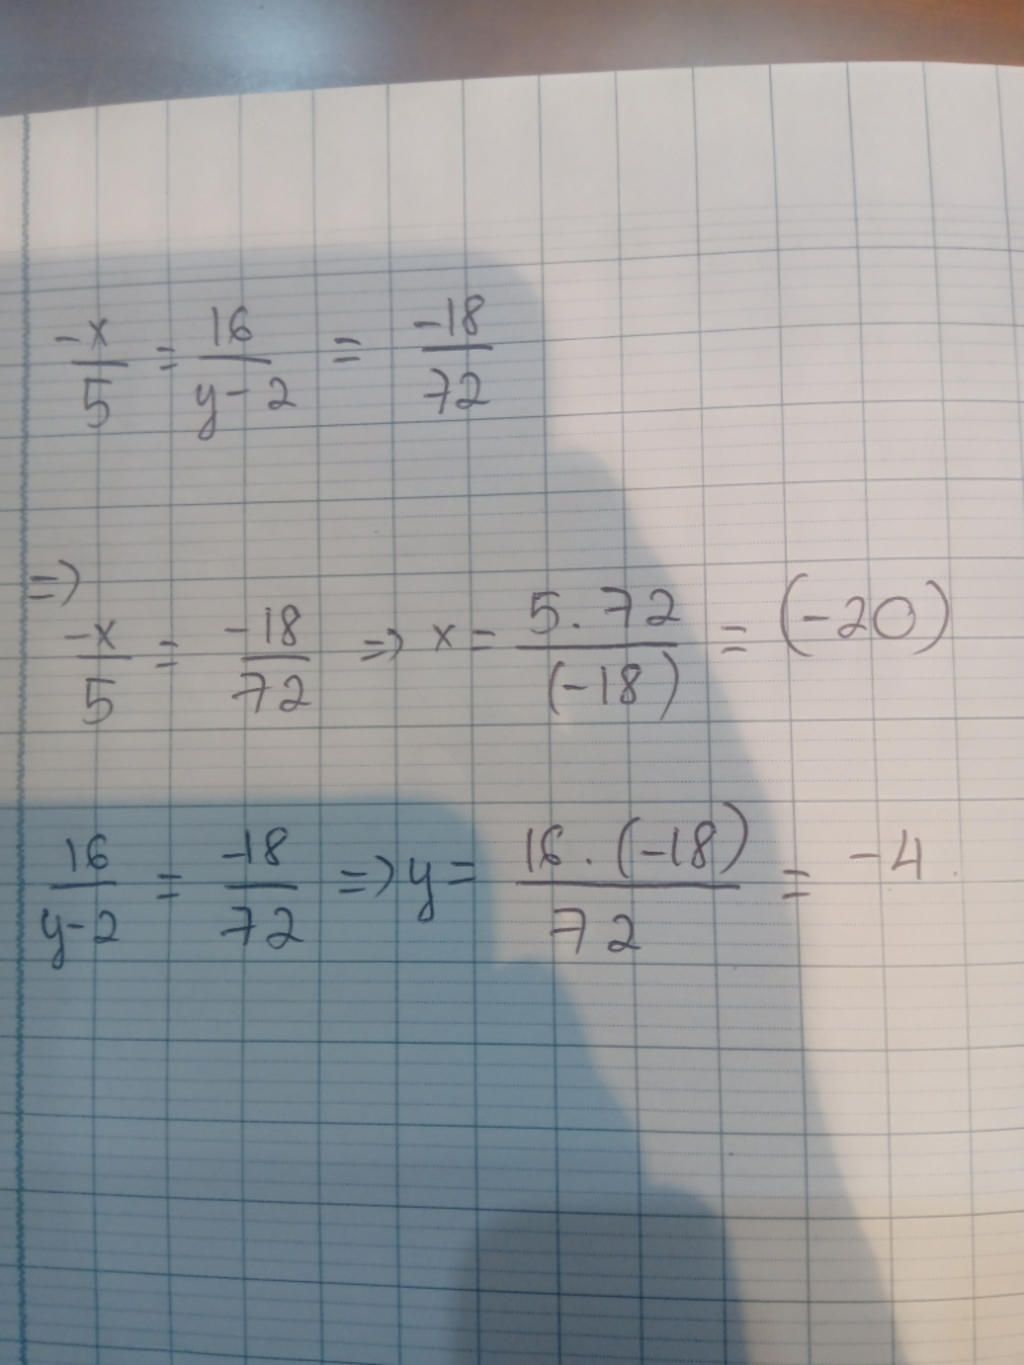 -x/5 = 16/y-2 = -18/72
=>
-x/5 = -18/72 => x = 5.72/(-18) = (-20)
16/y-2 = -18/72 => y = 16.(-18)/72 = -4